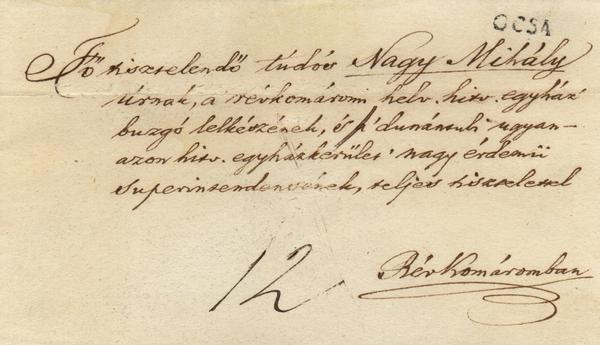 OCSA
Fő tisztelendő túdós Nagy Mihály
úrnak, a révkomáromi helv. hitv. egyház'
buzgó lelkészének, és a' dunántuli ugyan-
azon hitv. egyházkerület' nagy érdemű
superintendensének, teljes tisztelettel
12
Révkomáromban